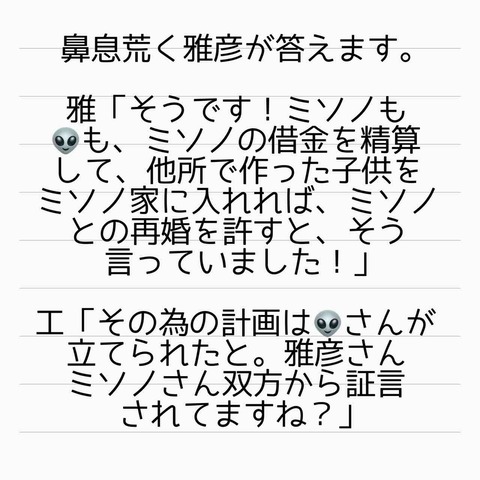 鼻息荒く雅彦が答えます。
雅「そうです！ミソノも
👽も、ミソノの借金を精算
して、他所で作った子供を
ミソノ家に入れれば、ミソノ
との再婚を許すと、そう
言っていました！」
工「その為の計画は👽さんが
立てられたと。雅彦さん
ミソノさん双方から証言
されてますね？」